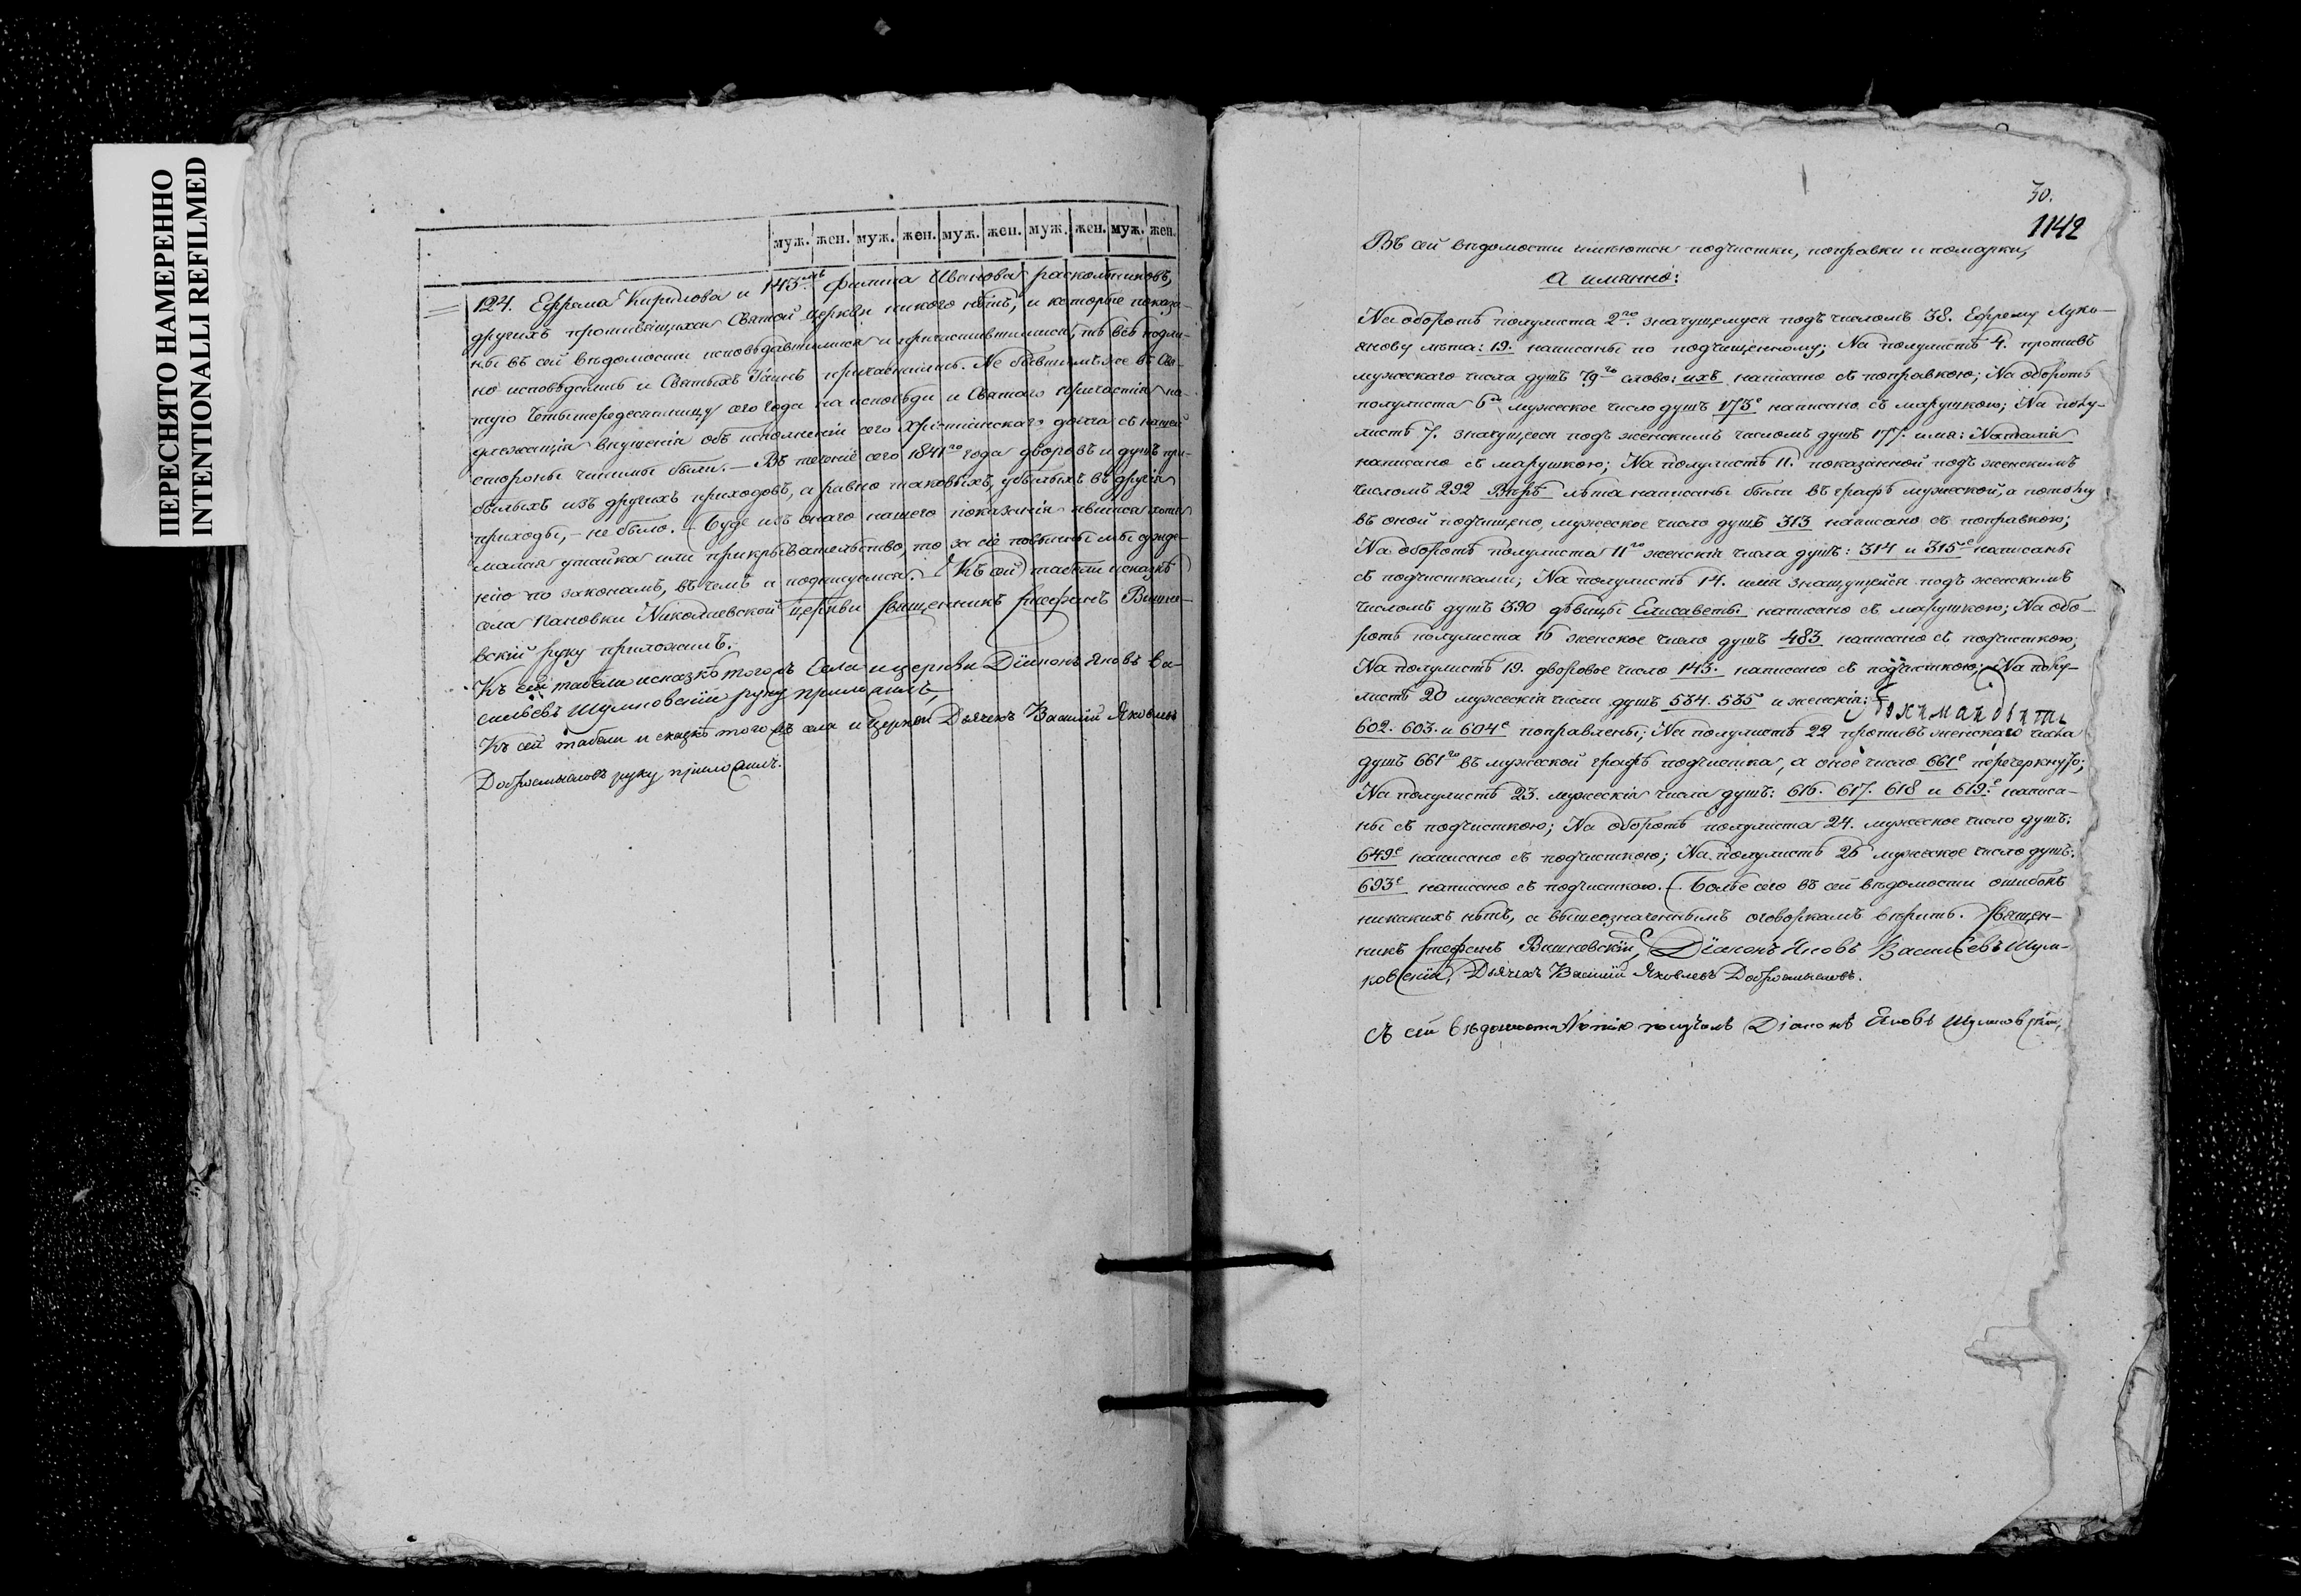 ПЕРЕСНЯТО НАМЕРЕННО
INTENTIONALLI REFILMED
муж. жен. муж. жен. муж. жен. муж. жен. муж. жен.
124. Ефрема Кирилова и 143мъ Филипа Иванова раскольниковъ,
другихъ противящихся Святой Церкви никого нѣтъ, и которые показа-
ны въ сей вѣдомости исповѣдавшимися и причастившимися, тѣ всѣ подли-
но исповѣданы и Святыхъ Таинъ причастились. Не бывшимъ же въ Свя-
тую Четыредесятницу сего года на исповѣди и Святаго причастія на-
длежащія внушенія объ исполненіи сего Христіанскаго долга съ нашей
стороны чинимы были. — Въ теченіе сего 1841го года дворовъ и душъ при-
былыхъ изъ другихъ приходовъ, а равно таковыхъ, убылыхъ въ другіе
приходы, – не было. – Буде изъ онаго нашего показанія явится хотя
малая утайка или прикрывательство, то за сіе повинны мы сужде-
нію по законамъ, въ чемъ и подписуемся. Къ сей табели и сказкѣ
села Пановки Николаевской церкви Священникъ Стефанъ Вишне-
вскій руку приложилъ.
Къ сей табели и сказкѣ тогожъ Села и церкви Діаконъ Яковъ Ва-
сильевъ Шумковскій руку приложилъ,
Къ сей табели и сказкѣ тогожъ села и церкви Дьячекъ Василій Яковлевъ
Добросмысловъ руку приложилъ.
30.
1142
Въ сей вѣдомости имѣются подчистки, поправки и помарки,
а имянно:
На оборотѣ полулиста 2го значущемуся подъ числомъ 38. Ефрему Лукь-
янову лѣта: 19. написаны по подчищенному; На полулистѣ 4. противъ
мужескаго числа душъ 79го слово: ихъ написано съ поправкою; На оборотѣ
полулиста 6го мужеское число душъ 173е написано съ марушкою; На полу-
листѣ 7. значущееся подъ женскимъ числомъ душъ 177. имя: Наталія
написано съ марушкою; На полулистѣ 11. показанной подъ женскимъ
числомъ 292 лѣта написаны были въ графѣ мужеской, а потому
въ оной подчищено, мужеское число душъ 313 написано съ поправкою;
На оборотѣ полулиста 11го женскія числа душъ: 314 и 315е написаны
съ подчистками; На полулистѣ 14. имя значущейся подъ женскимъ
числомъ душъ 390 дѣвицы Елисаветы написано съ марушкою; На обо-
ротѣ полулиста 16 женское число душъ 483 написано съ подчисткою;
На полулистѣ 19. дворовое число 143. написано съ подчисткою; На полу-
листѣ 20 мужескія числа душъ 534. 535 и женскія:
602. 603. и 604е поправлены; На полулистѣ 22 противъ женскаго числа
душъ 661го въ мужеской графѣ подчистка, а оное число 661е перечеркнуто;
На полулистѣ 23. мужескія числа душъ: 616. 617. 618 и 619.е написа-
ны съ подчисткою; На оборотѣ полулиста 24. мужеское число душъ:
649е написано съ подчисткою; На полулистѣ 26 мужеское число душъ:
693е написано съ подчисткою. – Болѣе сего въ сей вѣдомости ошибокъ
никакихъ нѣтъ, а вышеозначеннымъ оговоркамъ вѣрить. Священ-
никъ Стефанъ Вишневскій, Діаконъ Яковъ Васильевъ Шум-
ковскій, Дьячекъ Василій Яковлевъ Добросмысловъ.
Съ сей вѣдомости Копію получилъ Діаконъ Яковъ Шумковскій,